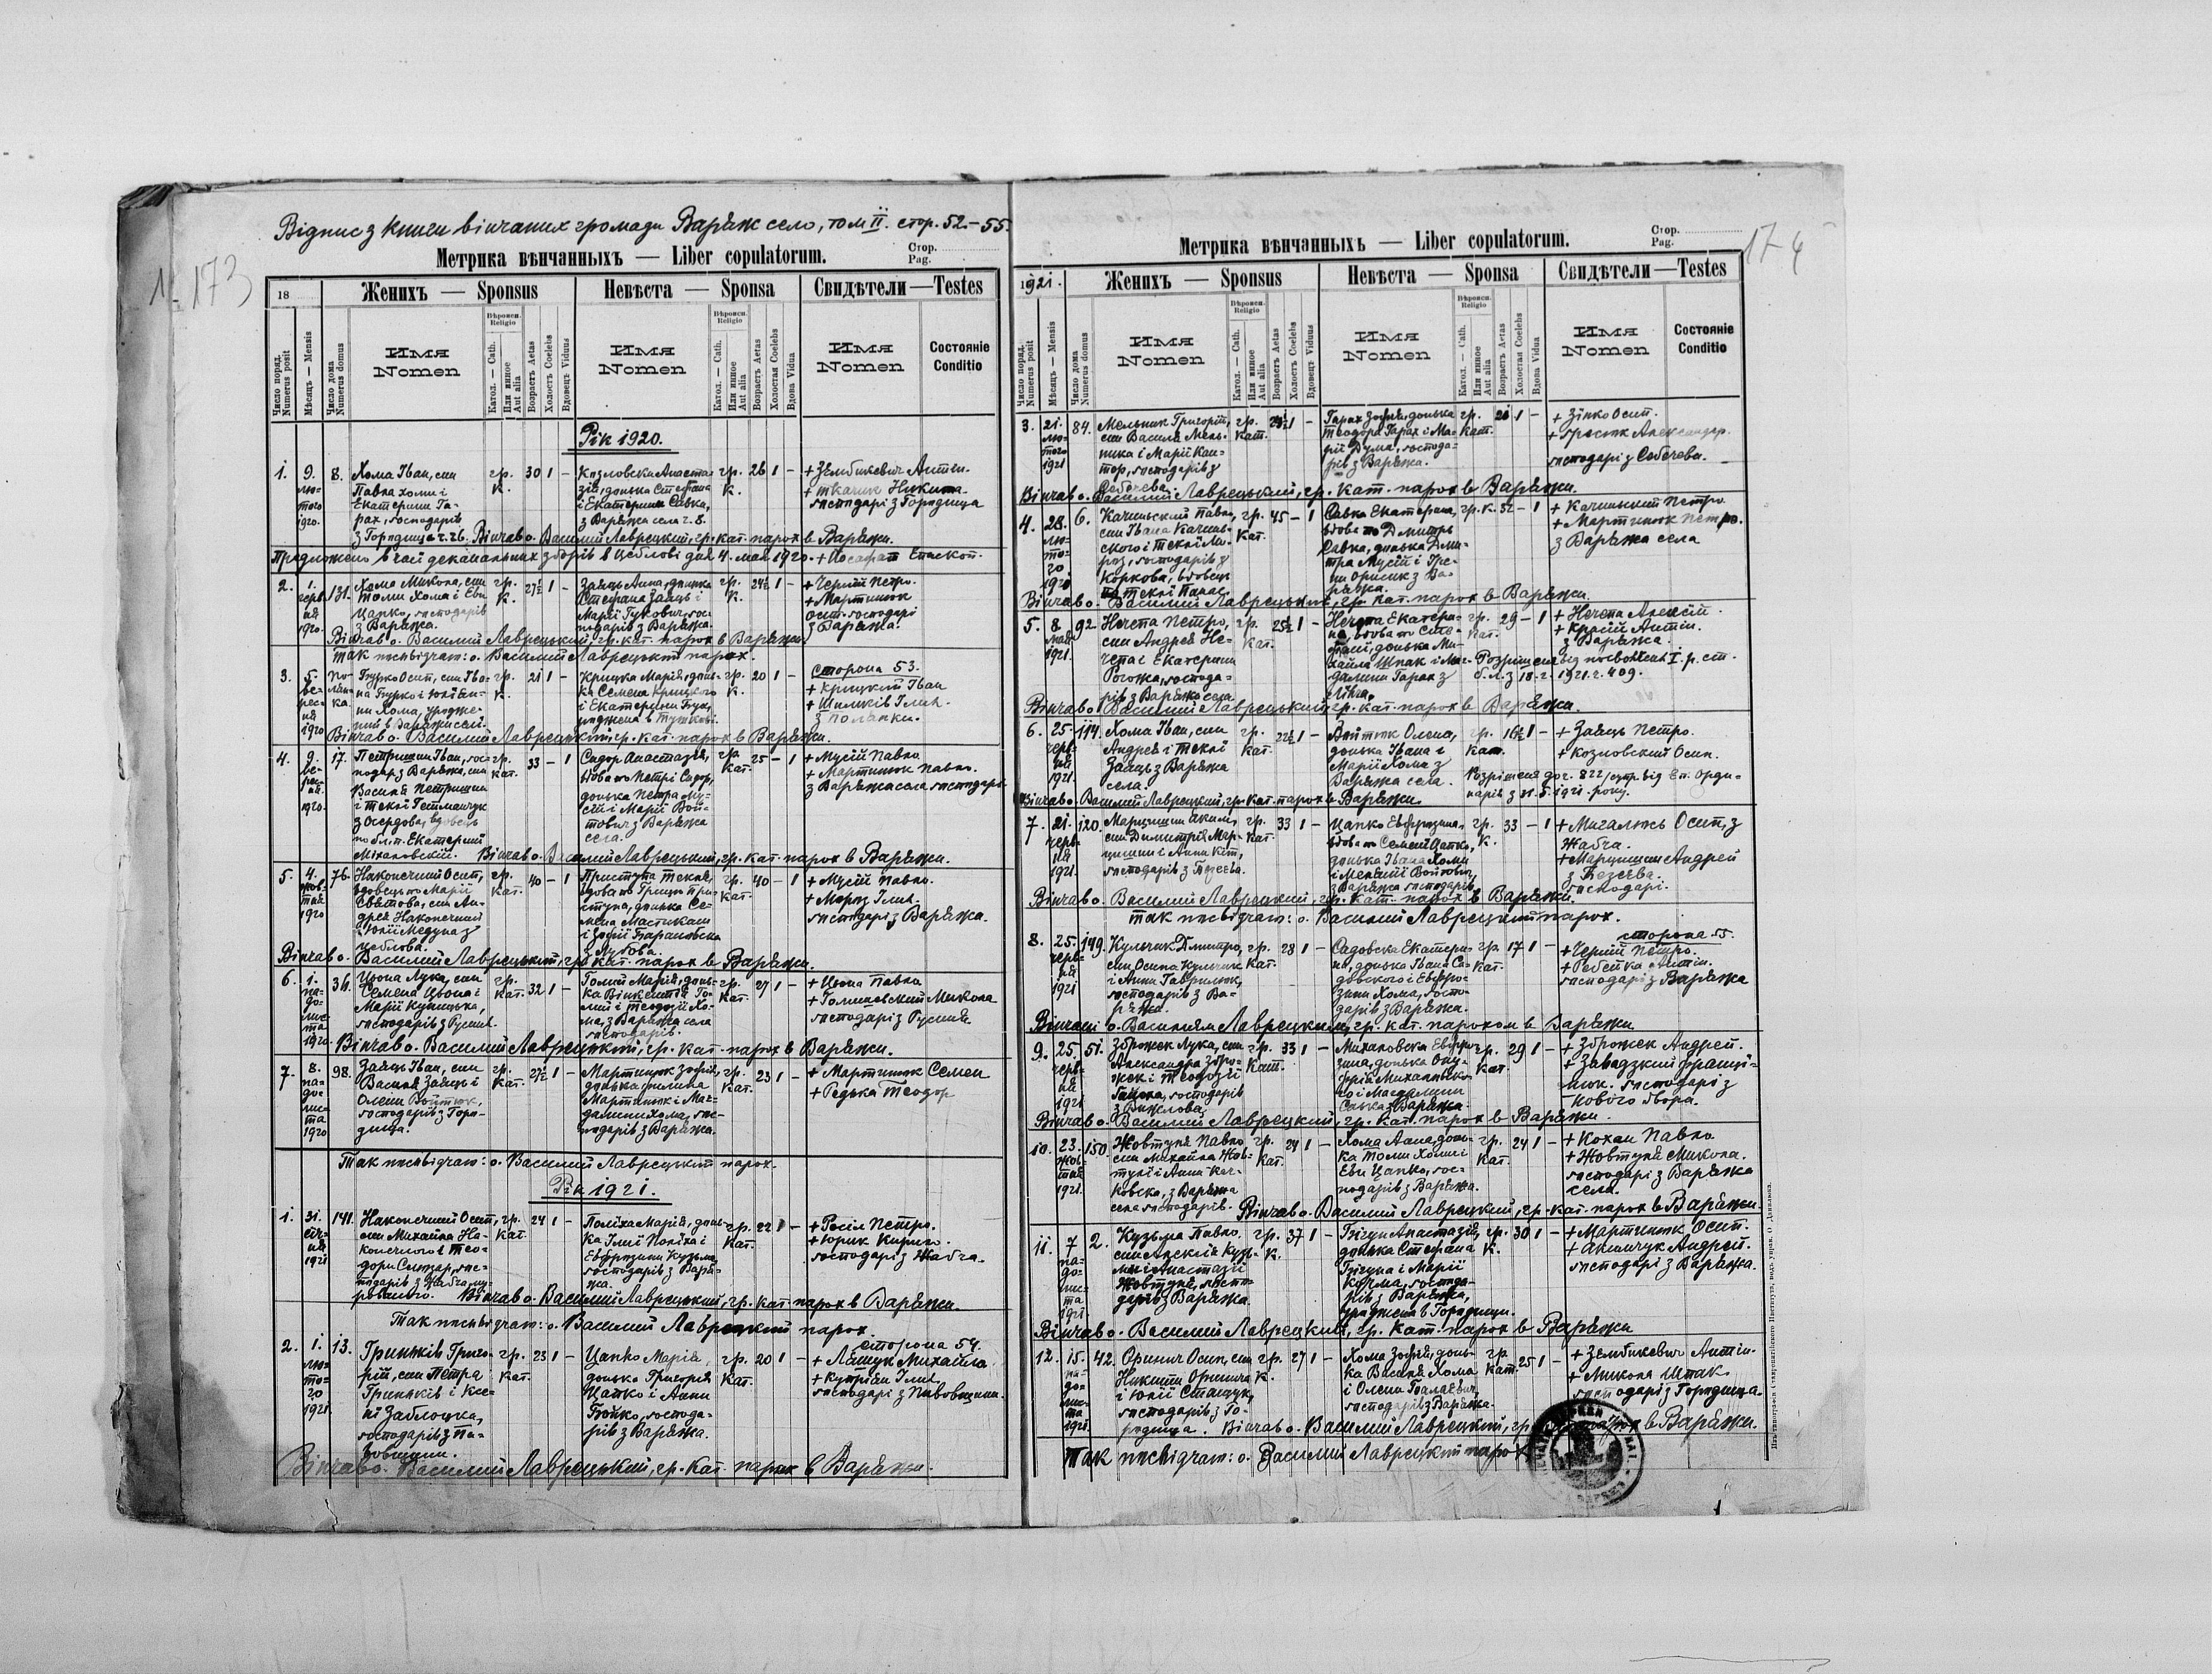 Відпис з книги вінчаних громади Варяж село, том II. стор. 52–55.
Метрика вѣнчанныхъ — Liber copulatorum.
Стор.
Pag.
173
18
Женихъ — Sponsus
Невѣста — Sponsa
Свидѣтели — Testes
Число поряд. Numerus posit
Мѣсяцъ — Mensis
Число дома Numerus domus
Имя Nomen
Вѣроисп. Religio
Катол. — Cath.
Или инное Aut alia
Возрасть Aetas
Холость Coelebs
Вдовецъ Viduus
Имя Nomen
Вѣроисп. Religio
Катол. — Cath.
Или инное Aut alia
Возрасть Aetas
Холостая Coelebs
Вдова Vidua
Имя Nomen
Состояніе Conditio
Рік 1920.
1. 9. лютого 1920. 8.
Хома Іван, син
Павла Хоми і
Екатерини Гарах, господарів
з Городища ч. 26.
гр. к. 30 1 –
Козловска Анастазія, донька Стефана
і Екатерини Савка,
з Варяжа села ч. 8.
гр. к. 26 1 –
+ Зембикевич Антін.
+ Ткачик Никита.
господарі з Городища
Вінчав о. Василий Лаврецький, гр. кат. парох в Варяжи.
Предложено в часі деканальних зборів в Цеблові дня 4. мая 1920. + Йосафат Епископ.
2. 1. червня 1920. 131.
Хома Микола, син
Томи Хома і Еви
Цапко, господарів
з Варяжа.
гр. к. 27½ 1 –
Заяць Анна, донька
Стефана Заяць і
Марії Гукович, господарів з Варяжа.
гр. к. 24½ 1 –
+ Черній Петро.
+ Мартинюк
Осип. господарі
з Варяжа.
Вінчав о. Василий Лаврецький, гр. кат. парох в Варяжи.
Так посвідчаю: о. Василий Лаврецький парох.
3. 5. вересня 1920
Бурко Осип, син Івана Бурко і Юлії Хома, уродже-
ний в Варяжи селі.
гр. к. 21 1 –
Крицка Марія, донька Семена Крицкого
і Екатерини
уроджена в
гр. к. 20 1 –
сторона 53.
+ Крицкий Іван
+ Ілия.
з Полянки.
Вінчав о. Василий Лаврецький гр. кат. парох в Варяжи.
4. 9. вересня. 1920. 17.
Петришин Іван, господар з Варяжа, син
Василя Петришин
і Теклі Гетманчук
з Осердова, вдовець
по бл. п. Екатерині
Міхановскій.
гр. кат. 33 – 1
Сидор Анастазія,
вдова по Петрі Сидор,
донька Петра Мусій і Марії Войтович з Варяжа
села.
гр. кат. 25 – 1
+ Мусій Павло
+ Мартинюк Павло.
з Варяжа села господарі
Вінчав о. Василий Лаврецький, гр. кат. парох в Варяжи.
5. 4. жовтня 1920 76.
Наконечний Осип,
вдовець по Марії
син Андрея Наконечний
і Юлії Медуха з
Цеблова.
гр. кат. 40 – 1
Приступа Текля,
вдова по Грицю Приступа, донька Семена
і Зофії Барановска
гр. кат. 40 – 1
+ Мусій Павло.
+ Мороз Ілия.
господарі з Варяжа.
Вінчав о. Василий Лаврецький, гр. кат. парох в Варяжи.
6. 1. падолиста 1920 34.
Цьона Лука, син
Семена Цьона і
Марії
господарів з Русина.
гр. кат. 32 1 –
Голий Марія, донька Вінкентія Голий і Теодозії Хома, з Варяжа села
господарів.
гр. кат. 27 1 –
+ Цьона Павло
+ Микола
господарі з Русина
Вінчав о. Василий Лаврецький, гр. кат. парох в Варяжи.
7. 8. падолиста 1920 98.
Заяць Іван, син
Василя Заяць і
Олени Войтюк,
господарів з Городища.
гр. кат. 27½ 1 –
Мартинюк Зофія,
донька Филипа
Мартинюк і Магдалини Хома, господарів з Варяжа.
гр. кат. 23 1 –
+ Мартинюк Семен
+ Редька Теодор
Так посвідчаю: о. Василий Лаврецький парох.
Рік 1921.
1. 31. січня 1921 141.
Наконечний Осип,
син Михайла Наконечного і Теодори Слюзар, господарів з Жабча мурованого.
гр. кат. 24 1 –
Поліха Марія, донька Ілиї Поліха і
Евфрозини Кузьма,
господарів з Варяжа.
гр. кат. 22 1 –
+ Росіл Петро.
+ Юрик Кирило.
господарі з Жабча.
Вінчав о. Василий Лаврецький, гр. кат. парох в Варяжи.
Так посвідчаю: о. Василий Лаврецкий парох
2. 1. лютого 1921. 13.
Гриньків Григорій, син Петра
Гриньків і Ксені Заблоцка,
господарів з Пивовщини.
гр. кат. 23 1 –
Цапко Марія,
донька Григорія
Цапко і Анни
Бойко, господарів з Варяжа.
гр. кат. 20 1 –
сторона 54.
+ Ляшук Михайло.
+ Купріян Ілия.
господарі з Пивовщини.
Вінчав о. Василий Лаврецький, гр. кат. парох в Варяжи.
Метрика вѣнчанныхъ — Liber copulatorum.
Стор.
Pag.
174
1921.
Женихъ — Sponsus
Невѣста — Sponsa
Свидѣтели — Testes
Число поряд. Numerus posit
Мѣсяцъ — Mensis
Число дома Numerus domus
Имя Nomen
Вѣроисп. Religio
Катол. — Cath.
Или инное Aut alia
Возрасть Aetas
Холость Coelebs
Вдовецъ Viduus
Имя Nomen
Вѣроисп. Religio
Катол. — Cath.
Или инное Aut alia
Возрасть Aetas
Холостая Coelebs
Вдова Vidua
Имя Nomen
Состояніе Conditio
3. 21. лютого 1921 84.
Мельник Григорій,
син Василя Мельника і Марії Кантор, господарів з
Себечева.
гр. кат. 1 –
Гарах Зофія, донька
Теодора Гарах і Марії Дума, господарів з Варяжа.
гр. кат. 1 –
+ Зінко Осип.
+ Александер.
господарі з Себечева.
Вінчав о. Василий Лаврецький, гр. кат. парох в Варяжи.
4. 28. лютого 1921 6.
Качиньский Павло,
син Івана Качиньского і Теклі Мороз, господарів з
Коркова, вдовець
по Теклі Панас.
гр. кат. 45 – 1
Савка Екатерина,
вдова по Дмитрі
Савка, донька Дмитра Мусій і Ірени Орисик з Варяжа.
гр. к. 32 – 1
+ Качиньский Петро.
+ Мартинюк Петро.
з Варяжа села
Вінчав о. Василий Лаврецький, гр. кат. парох в Варяжи.
5. 8 мая 1921. 92
Нечепа Петро,
син Андрея Нечепа і Екатерини
Рогожа, господарів з Варяжа села
гр. кат. 25½ 1 –
Нечепа Екатерина, вдова по
донька Михайла Шпак і Магдалини Гарах з
гр. кат. 29 – 1
+ Нечепа Алексій.
+ Красій Антін.
з Варяжа.
Розрішеня від посвоячення I. р. ст.
б. Л. з 18. 2. 1921. ч. 409.
Вінчав о. Василий Лаврецький, гр. кат. парох в Варяжи.
6. 25. червня 1921. 114.
Хома Іван, син
Андрея і Теклі
Заяць з Варяжа
села.
гр. кат. 22½ 1 –
Войтюк Олена,
донька Івана і
Марії Хома з
Варяжа села.
гр. кат. 16½ 1 –
+ Заяць Петро.
+ Козловский Осип.
Розрішеня до ч. 822/ від Еп. Ординарія з 31. 5. 1921. року.
Вінчав о. Василий Лаврецкий, гр. кат. парох в Варяжи.
7. 21. червня 1921. 120.
Марцишин Аким,
син Димитрія Марцишин і Анни Кіт,
господарів з
гр. кат. 33 1 –
Цапко Евфрузина,
вдова по Семені Цапко,
донька Івана Хоми
і Меланії Войтович,
з Варяжа господарів
гр. к. 33 – 1
+ Михалюсь Осип, з
Жабча.
+ Марцишин Андрей
з
господарі.
Вінчав о. Василий Лаврецький, гр. кат. парох в Варяжи.
Так посвідчаю: о. Василий Лаврецкий парох.
8. 25. червня 1921 149.
Кульчик Дмитро,
син Осипа Кульчик
і Анни Гаврилюк,
господарів з Варяжа.
гр. кат. 28 1 –
Садовска Екатерина, донька Івана Садовского і Евфрозини Хома, господарів з Варяжа.
гр. кат. 17 1 –
сторона 55.
+ Черній Петро.
+ Ребейка Антін.
господарі з Варяжа
Вінчані о. Василиям Лаврецким, гр. кат. парохом в Варяжи
9. 25. червня 1921 51.
Зброжек Лука, син
Александра Зброжек і Теодозії
господарів
з Вижлова.
гр. кат. 33 1 –
Михановска Евфрузина, донька Онуфрія Михановского і Магдалини
Савка з Варяжа.
гр. кат. 29 1 –
+ Зброжек Андрей.
+ Завадзкий Францішок. господарі з
Нового двора.
Вінчав о. Василий Лаврецкий, гр. кат. парох в Варяжи.
10. 23. жовтня 1921. 150.
Жовтуля Павло
син Михайла Жовтулі і Анни Качковска, з Варяжа
села господарів.
гр. кат. 24 1 –
Хома Анна, донька Томи Хоми і
Еви Цапко, господарів з Варяжа.
гр. кат. 24 1 –
+ Кохан Павло
+ Жовтуля Микола.
господарі з Варяжа
села.
Вінчав о. Василий Лаврецкий, гр. кат. парох в Варяжи.
11. 7 падолиста 1921. 2.
Кузьма Павло
син Алексія Кузьми і Анастазії
Жовтуля, господарів з Варяжа.
гр. к. 37 1 –
Бігун Анастазія,
донька Стефана
Бігуна і Марії
Корма, господарів з Варяжа,
уроджена в Городищи.
гр. к. 30 1 –
+ Мартинюк Осип.
+ Андрей.
господарі з Варяжа.
Вінчав о. Василий Лаврецкий, гр. кат. парох в Варяжи
12. 15. падолиста 1921. 42.
Оринич Осип, син
Никити Оринича
і Юлії Стащук,
господарів з Городища.
гр. к. 27 1 –
Хома Зофія, донька Василя Хома
і Олени Балаєвич,
господарів з Варяжа.
гр. кат. 25 1 –
+ Зембикевич Антін.
+ Микола Шпак
господарі з Городища.
Вінчав о. Василий Лаврецкий, гр. кат. парох в Варяжи.
Так посвідчаю: о. Василий Лаврецкий парох